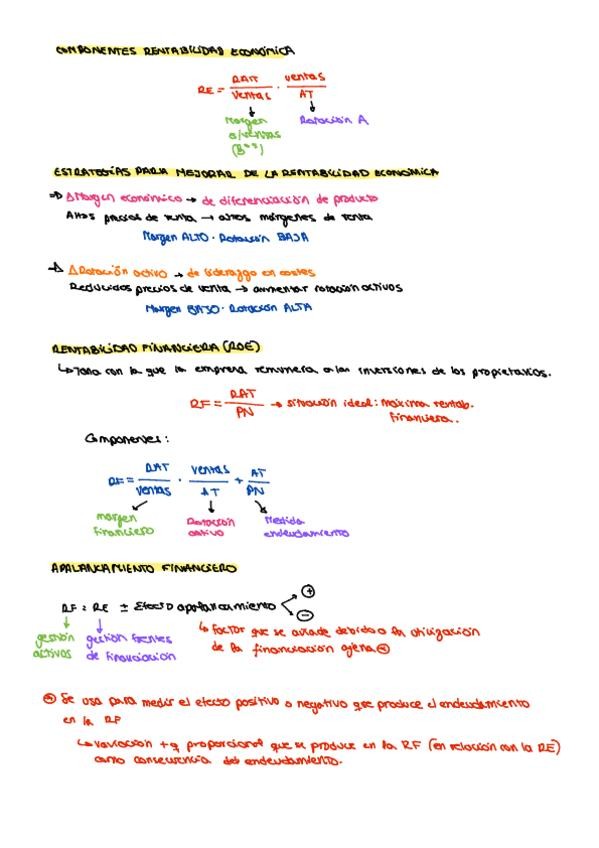 COMPONENTES RENTABILIDAD ECONÓMICA
RE = RAIT / Ventas · Ventas / AT
Margen s/ventas (Bº) Rotación A
ESTRATEGIAS PARA MEJORAR DE LA RENTABILIDAD ECONÓMICA
→ ΔMargen económico → de diferenciación de producto
Altos precios de venta → altos márgenes de venta
Margen ALTO · Rotación BAJA
→ ΔRotación activo → de liderazgo en costes
Reducidos precios de venta → aumentar rotación activos
Margen BAJO · Rotación ALTA
RENTABILIDAD FINANCIERA (ROE)
↳ Tasa con la que la empresa remunera a las inversiones de los propietarios.
RF = RAT / PN → situación ideal: máxima rentab. financiera.
Componentes:
RF = RAT / Ventas · Ventas / AT + AT / PN
margen financiero Rotación activo Medida endeudamiento
APALANCAMIENTO FINANCIERO
RF = RE ± Efecto apalancamiento < + −
gestión activos gestión fuentes de financiación
↳ Factor que se añade debido a la utilización
de la financiación ajena
Se usa para medir el efecto positivo o negativo que produce el endeudamiento
en la RF
↳ variación + q proporcional que se produce en la RF (en relación con la RE)
como consecuencia del endeudamiento.